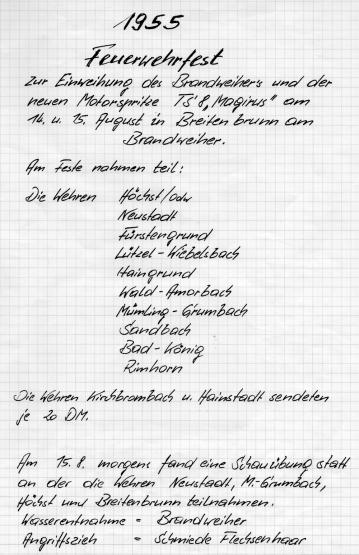 1955
Feuerwehrfest
Zur Einweihung des Brandweihers und der
neuen Motorspritze TS 8 „Magirus" am
14. u. 15. August in Breitenbrunn am
Brandweiher.
Am Feste nahmen teil:
Die Wehren Höchst/Odw
Neustadt
Fürstengrund
Lützel-Wiebelsbach
Haingrund
Wald-Amorbach
Mümling-Grumbach
Sandbach
Bad-König
Rimhorn
Die Wehren Kirchbrombach u. Hainstadt sendeten
je 20 DM.
Am 15.8. morgens fand eine Schauübung statt
an der die Wehren Neustadt, M.-Grumbach,
Höchst und Breitenbrunn teilnahmen.
Wasserentnahme = Brandweiher
Angriffszieh = Schmiede Flechsenhaar